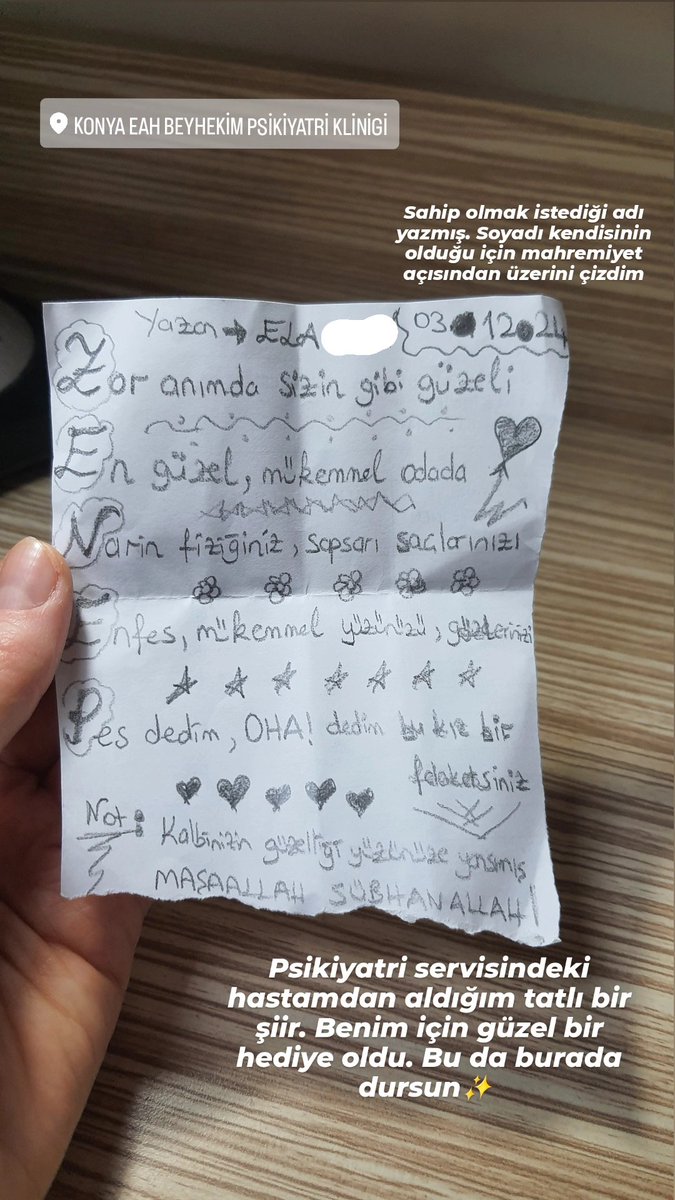 KONYA EAH BEYHEKİM PSİKİYATRİ KLİNİGİ
Sahip olmak istediği adı
yazmış. Soyadı kendisinin
olduğu için mahremiyet
açısından üzerini çizdim
Yazan → ELA {03.12.24
Zor anımda sizin gibi güzeli
En güzel, mükemmel odada
Narin fiziğiniz, sapsarı saçlarınızı
Enfes, mükemmel yüzünüzü, gözlerinizi
Pes dedim, OHA! dedim bu kız bir
felaketsiniz
Not: Kalbinizin güzelliği yüzünüze yansımış
MAŞAALLAH SÜBHANALLAH!
Psikiyatri servisindeki
hastamdan aldığım tatlı bir
şiir. Benim için güzel bir
hediye oldu. Bu da burada
dursun✨